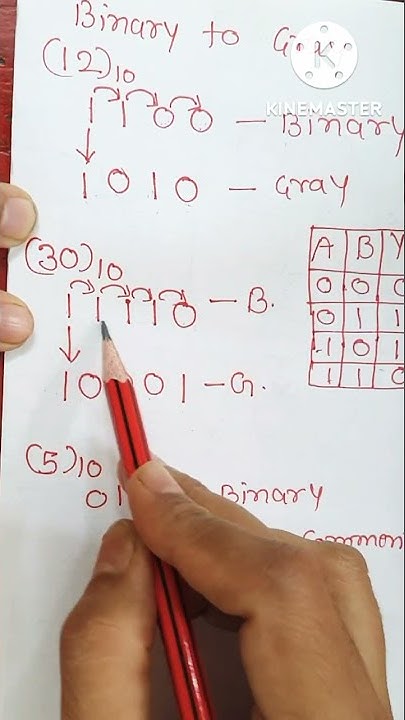 Binary to
(12)10
1 1 0 0 — Binary
KINEMASTER
1 0 1 0 — Gray
(30)10
1 1 1 1 0 — B.
A B Y
0 0 0
0 1 1
1 0 1
1 1 0
1 0 0 1 — G.
(5)10
0 Binary
Common